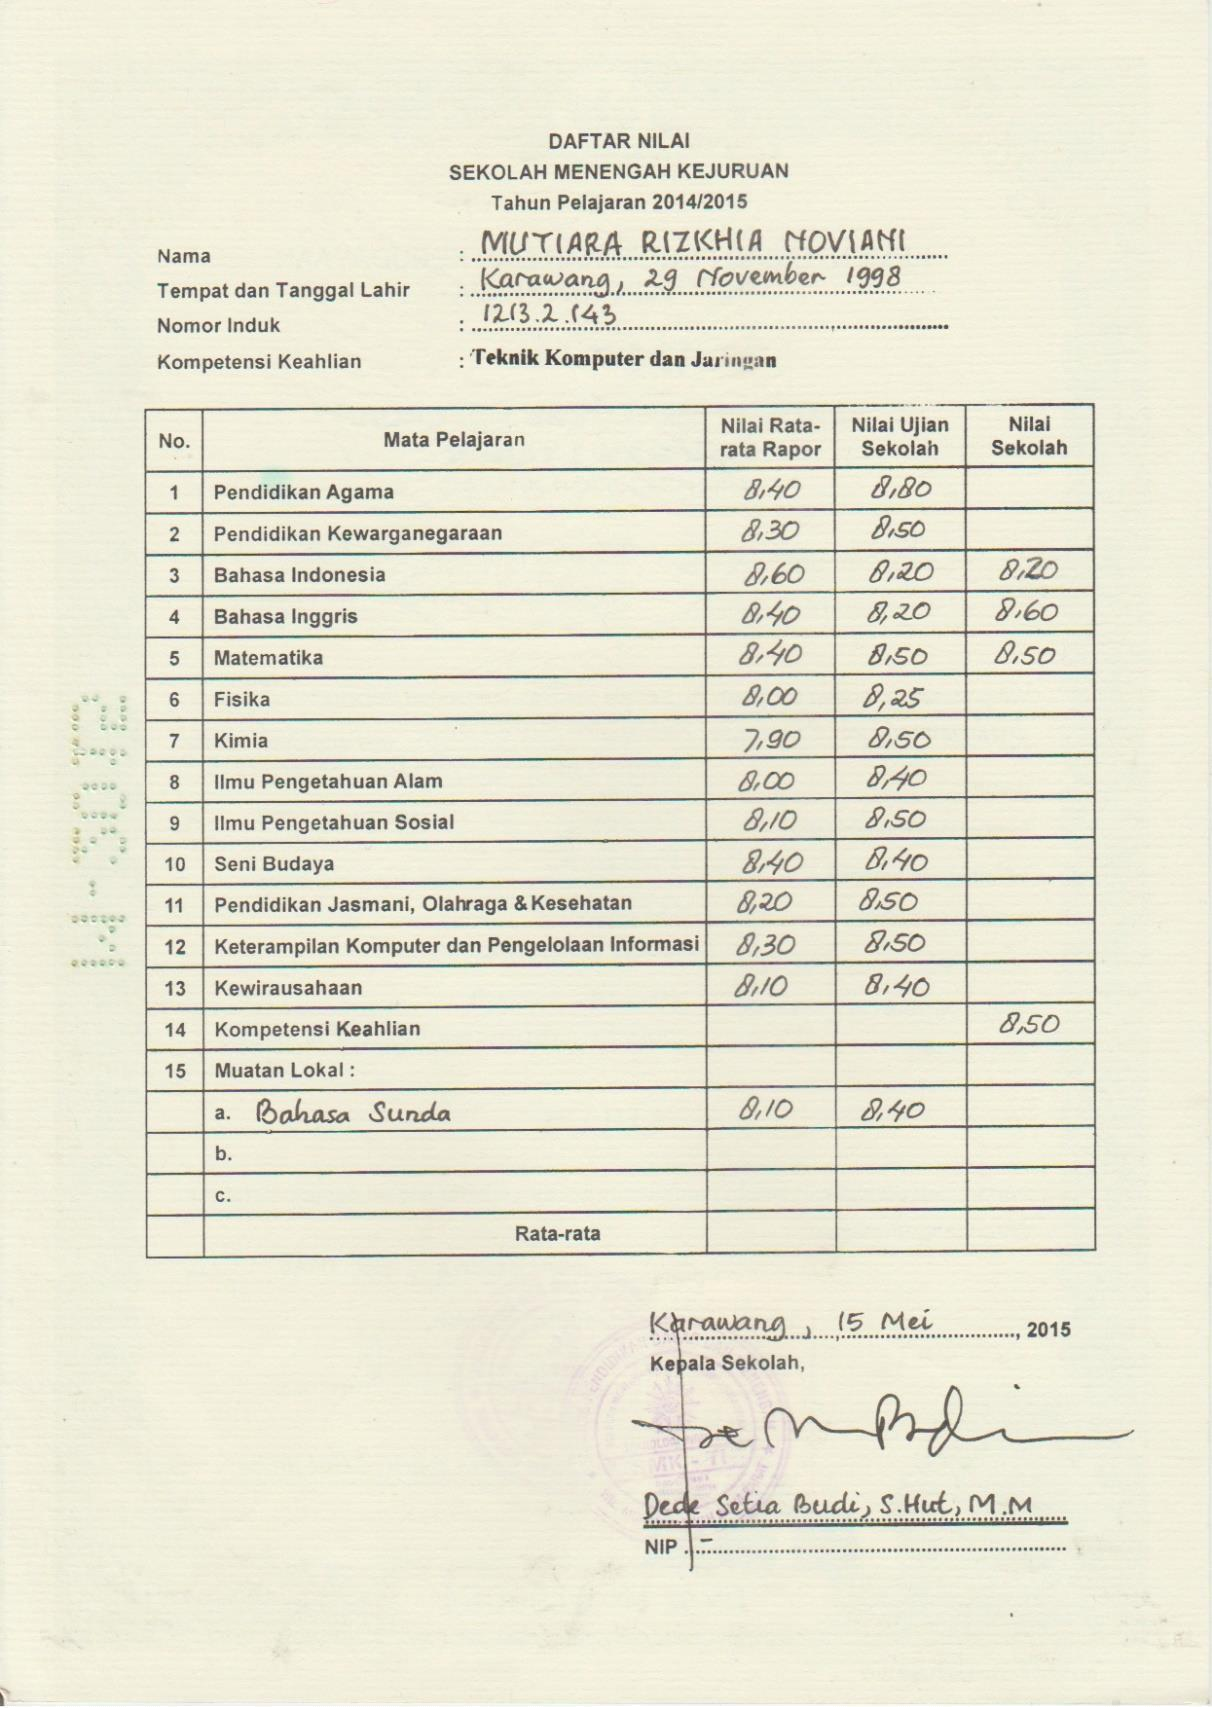 DAFTAR NILAI
SEKOLAH MENENGAH KEJURUAN
Tahun Pelajaran 2014/2015
Nama : MUTIARA RIZKHIA NOVIANI
Tempat dan Tanggal Lahir : Karawang, 29 November 1998
Nomor Induk : 1213.2.143
Kompetensi Keahlian : Teknik Komputer dan Jaringan
No. Mata Pelajaran Nilai Rata-rata Rapor Nilai Ujian Sekolah Nilai Sekolah
1 Pendidikan Agama 8,40 8,80
2 Pendidikan Kewarganegaraan 8,30 8,50
3 Bahasa Indonesia 8,60 8,20 8,20
4 Bahasa Inggris 8,40 8,20 8,60
5 Matematika 8,40 8,50 8,50
6 Fisika 8,00 8,25
7 Kimia 7,90 8,50
8 Ilmu Pengetahuan Alam 8,00 8,40
9 Ilmu Pengetahuan Sosial 8,10 8,50
10 Seni Budaya 8,40 8,40
11 Pendidikan Jasmani, Olahraga & Kesehatan 8,20 8,50
12 Keterampilan Komputer dan Pengelolaan Informasi 8,30 8,50
13 Kewirausahaan 8,10 8,40
14 Kompetensi Keahlian 8,50
15 Muatan Lokal :
a. Bahasa Sunda 8,10 8,40
b.
c.
Rata-rata
Karawang, 15 Mei, 2015
Kepala Sekolah,
Dede Setia Budi, S.Hut, M.M
NIP. -